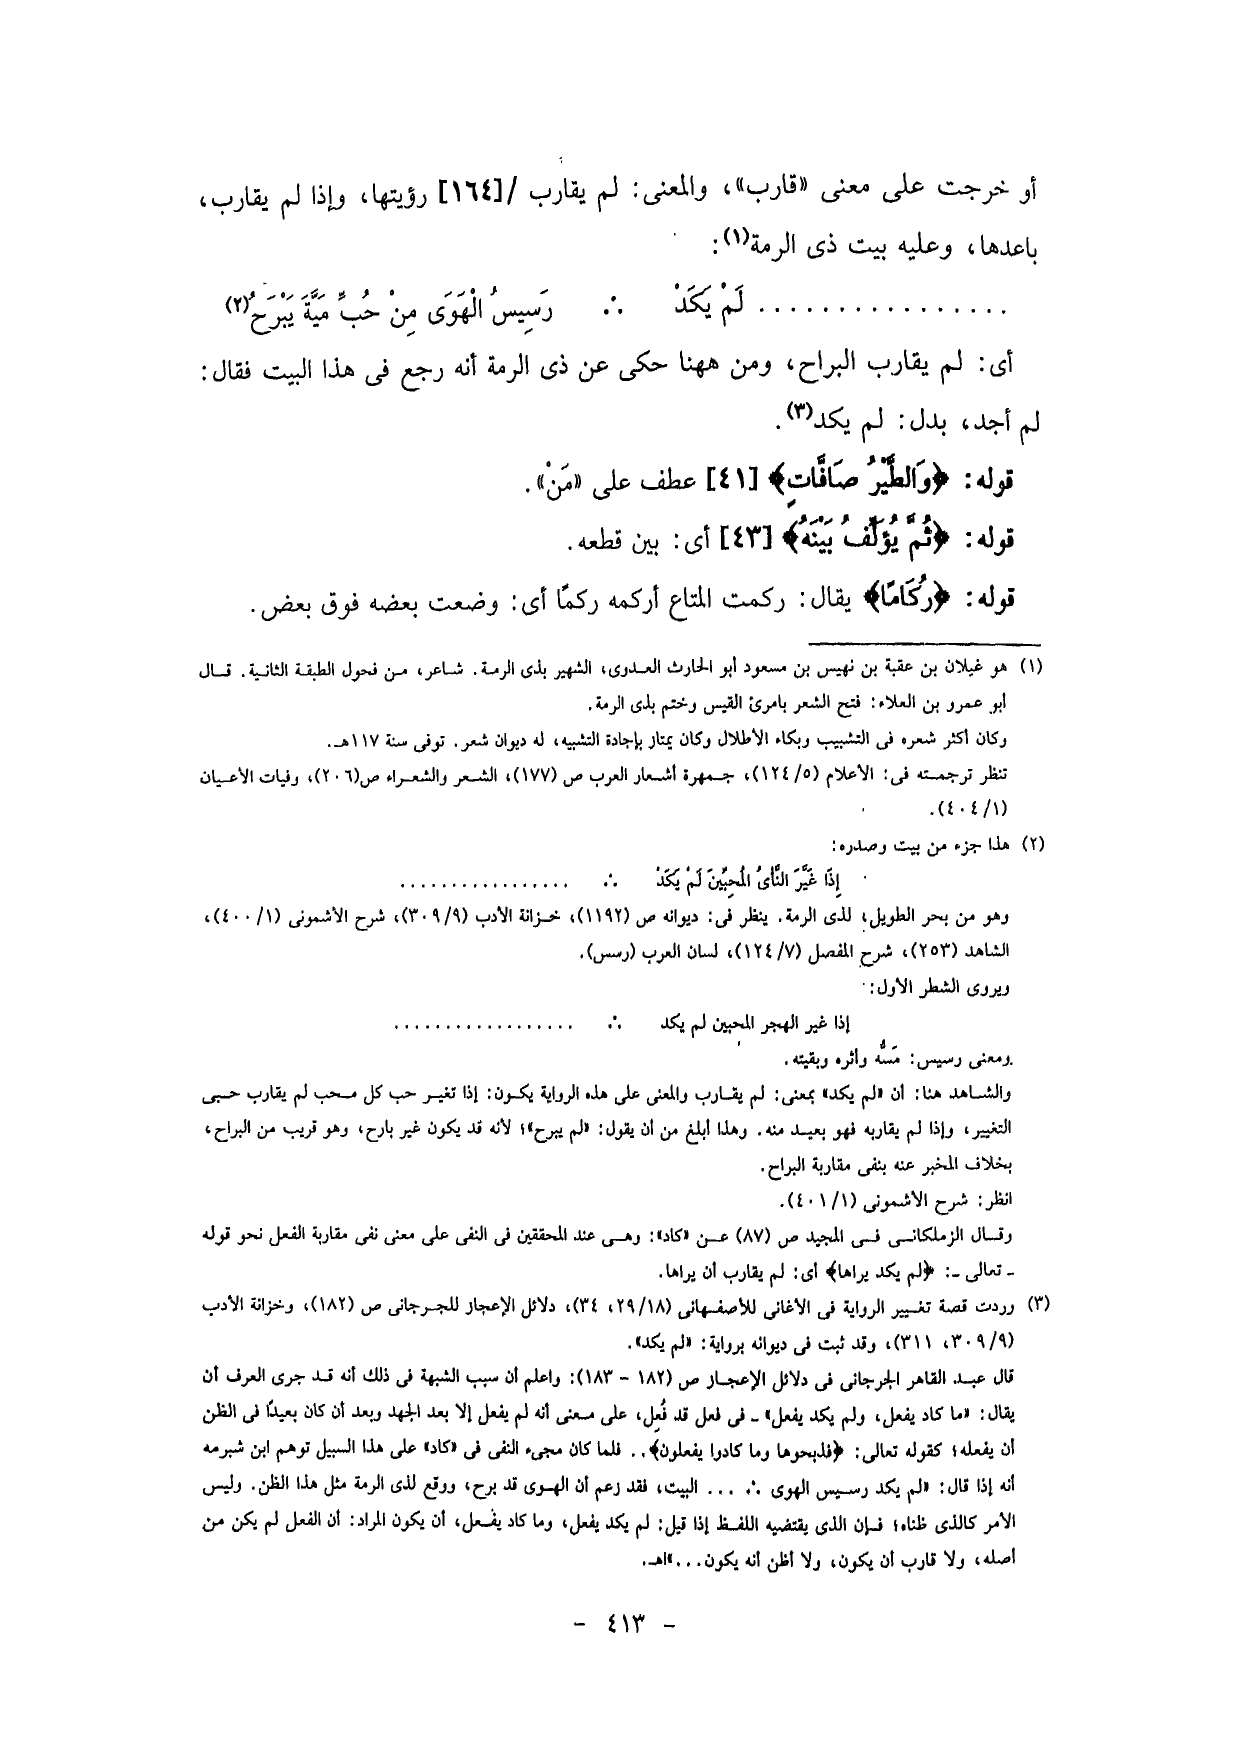 أو خرجت على معنى «قارب»، والمعنى: لم يقارب /[١٦٤] رؤيتها، وإذا لم يقارب،
باعدها، وعليه بيت ذى الرمة(١):
................ لَمْ يَكَدْ ∴ رَسِيسُ الْهَوَى مِنْ حُبِّ مَيَّةَ يَبْرَحُ(٢)
أى: لم يقارب البراح، ومن ههنا حكى عن ذى الرمة أنه رجع فى هذا البيت فقال:
لم أجد، بدل: لم يكد(٣).
قوله: ﴿وَالطَّيْرُ صَافَّاتٍ﴾ [٤١] عطف على «مَنْ».
قوله: ﴿ثُمَّ يُؤَلِّفُ بَيْنَهُ﴾ [٤٣] أى: بين قطعه.
قوله: ﴿رُكَامًا﴾ يقال: ركمت المتاع أركمه ركمًا أى: وضعت بعضه فوق بعض.
(١) هو غيلان بن عقبة بن نهيس بن مسعود أبو الحارث العدوى، الشهير بذى الرمة. شاعر، من فحول الطبقة الثانية. قال
أبو عمرو بن العلاء: فتح الشعر بامرئ القيس وختم بذى الرمة.
وكان أكثر شعره فى التشبيب وبكاء الأطلال وكان يمتاز بإجادة التشبيه، له ديوان شعر. توفى سنة ١١٧هـ.
تنظر ترجمته فى: الأعلام (١٢٤/٥)، جمهرة أشعار العرب ص (١٧٧)، الشعر والشعراء ص(٢٠٦)، وفيات الأعيان
(٤٠٤/١).
(٢) هذا جزء من بيت وصدره:
إِذَا غَيَّرَ النَّأىُ الْمُحِبِّينَ لَمْ يَكَدْ ∴ .................
وهو من بحر الطويل، لذى الرمة. ينظر فى: ديوانه ص (١١٩٢)، خزانة الأدب (٣٠٩/٩)، شرح الأشمونى (٤٠٠/١)،
الشاهد (٢٥٣)، شرح المفصل (١٢٤/٧)، لسان العرب (رسس).
ويروى الشطر الأول:
إذا غير الهجر المحبين لم يكد ∴ .................
ومعنى رسيس: مَسُّه وأثره وبقيته.
والشاهد هنا: أن «لم يكد» بمعنى: لم يقارب والمعنى على هذه الرواية يكون: إذا تغير حب كل محب لم يقارب حبى
التغيير، وإذا لم يقاربه فهو بعيد منه. وهذا أبلغ من أن يقول: «لم يبرح»؛ لأنه قد يكون غير بارح، وهو قريب من البراح،
بخلاف المخبر عنه بنفى مقاربة البراح.
انظر: شرح الأشمونى (٤٠١/١).
وقال الزملكانى فى المجيد ص (٨٧) عن «كاد»: وهى عند المحققين فى النفى على معنى نفى مقاربة الفعل نحو قوله
ـ تعالى ـ: ﴿لم يكد يراها﴾ أى: لم يقارب أن يراها.
(٣) وردت قصة تغيير الرواية فى الأغانى للأصفهانى (٢٩/١٨، ٣٤)، دلائل الإعجاز للجرجانى ص (١٨٢)، وخزانة الأدب
(٣٠٩/٩، ٣١١)، وقد ثبت فى ديوانه برواية: «لم يكد».
قال عبد القاهر الجرجانى فى دلائل الإعجاز ص (١٨٢ – ١٨٣): واعلم أن سبب الشبهة فى ذلك أنه قد جرى العرف أن
يقال: «ما كاد يفعل، ولم يكد يفعل» ـ فى فعل قد فُعِل، على معنى أنه لم يفعل إلا بعد الجهد وبعد أن كان بعيدًا فى الظن
أن يفعله؛ كقوله تعالى: ﴿فذبحوها وما كادوا يفعلون﴾.. فلما كان مجىء النفى فى «كاد» على هذا السبيل توهم ابن شبرمه
أنه إذا قال: «لم يكد رسيس الهوى ∴ ... البيت، فقد زعم أن الهوى قد برح، ووقع لذى الرمة مثل هذا الظن. وليس
الأمر كالذى ظناه؛ فإن الذى يقتضيه اللفظ إذا قيل: لم يكد يفعل، وما كاد يفعل، أن يكون المراد: أن الفعل لم يكن من
أصله، ولا قارب أن يكون، ولا أظن أنه يكون...»اهـ.
- ٤١٣ -